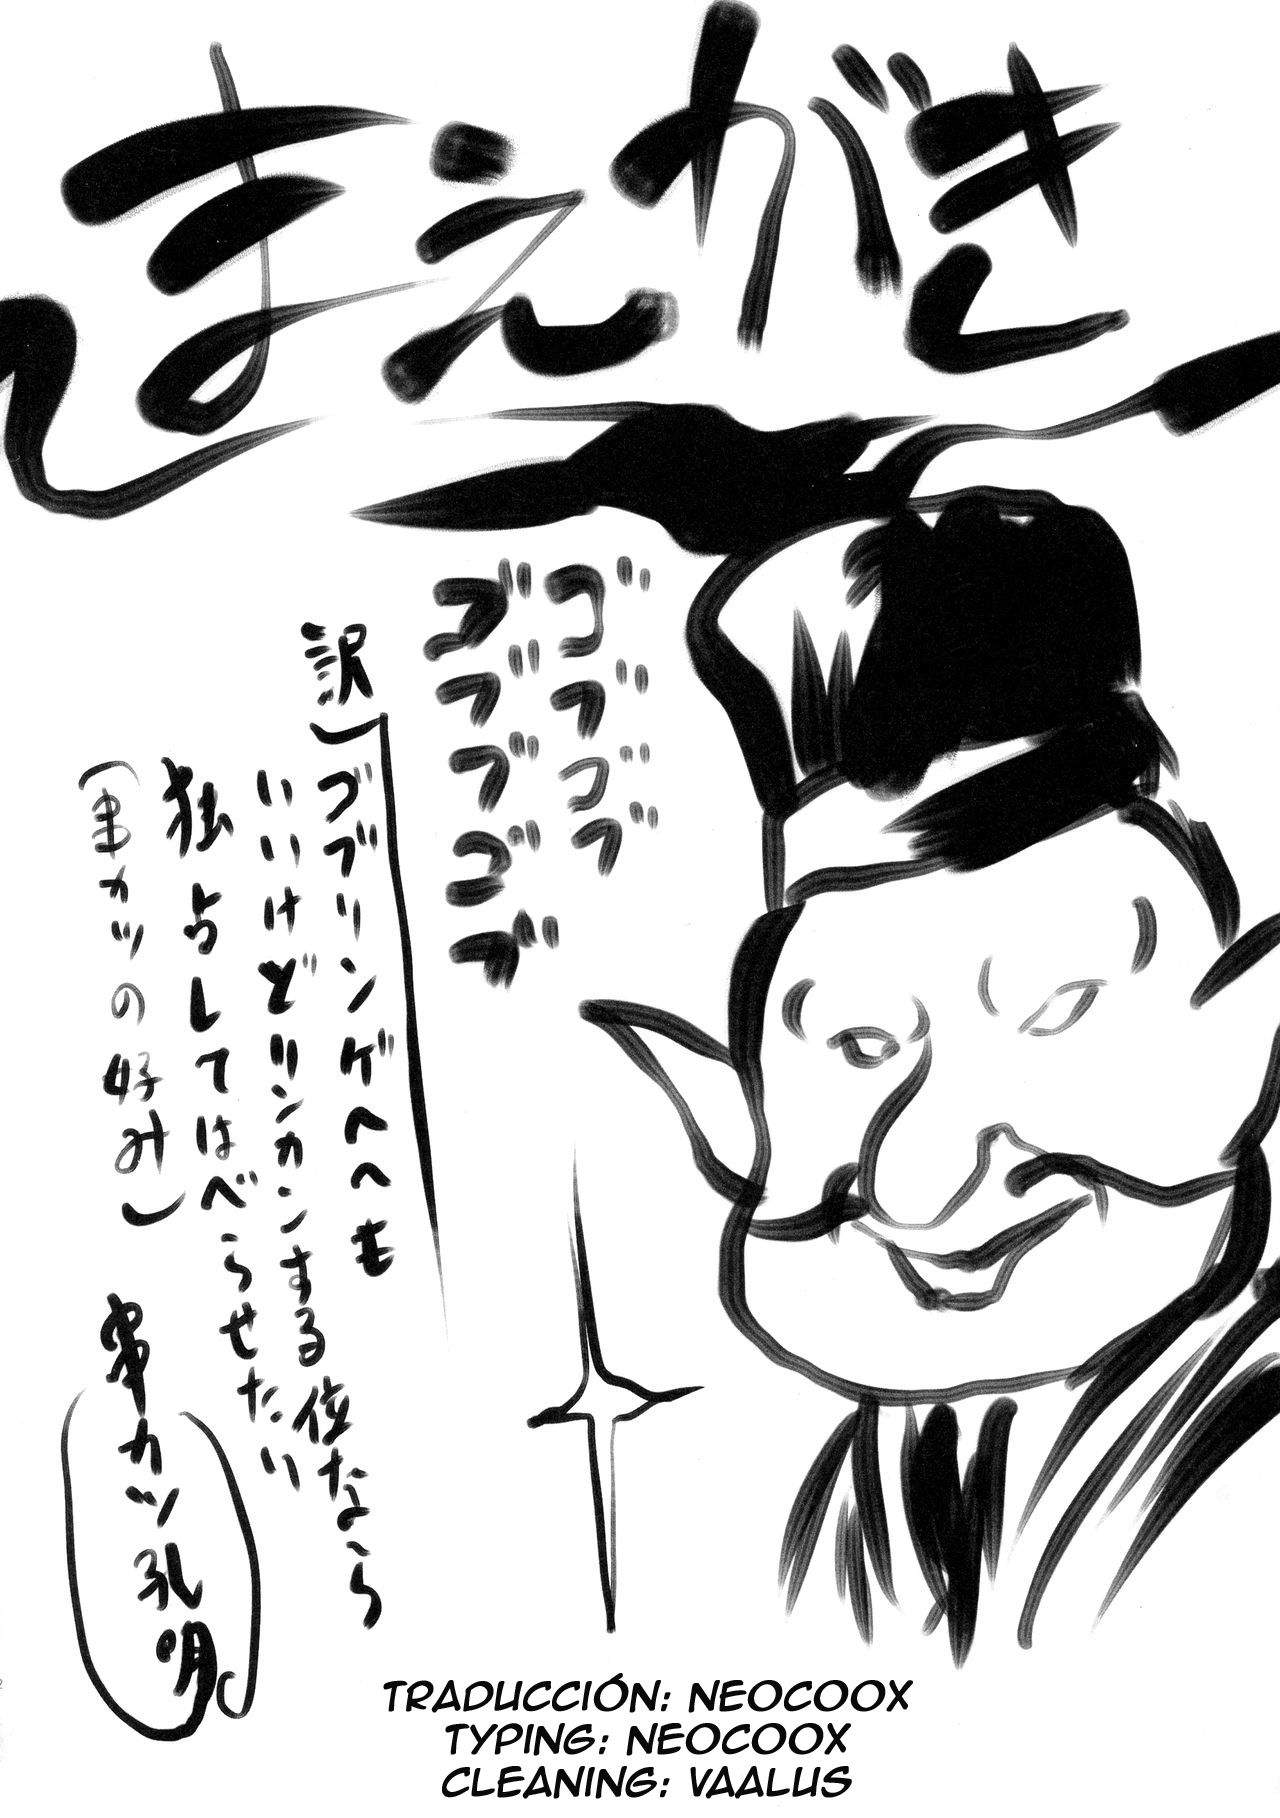 まえがき
ゴブゴブ
ゴブブゴブ
訳)ゴブリンゲヘヘも
いいけどリンカンする位なら
独占してはべらせたい
(串カツの好み)
串カツ孔明
TRADUCCIÓN: NEOCOOX
TYPING: NEOCOOX
CLEANING: VAALUS